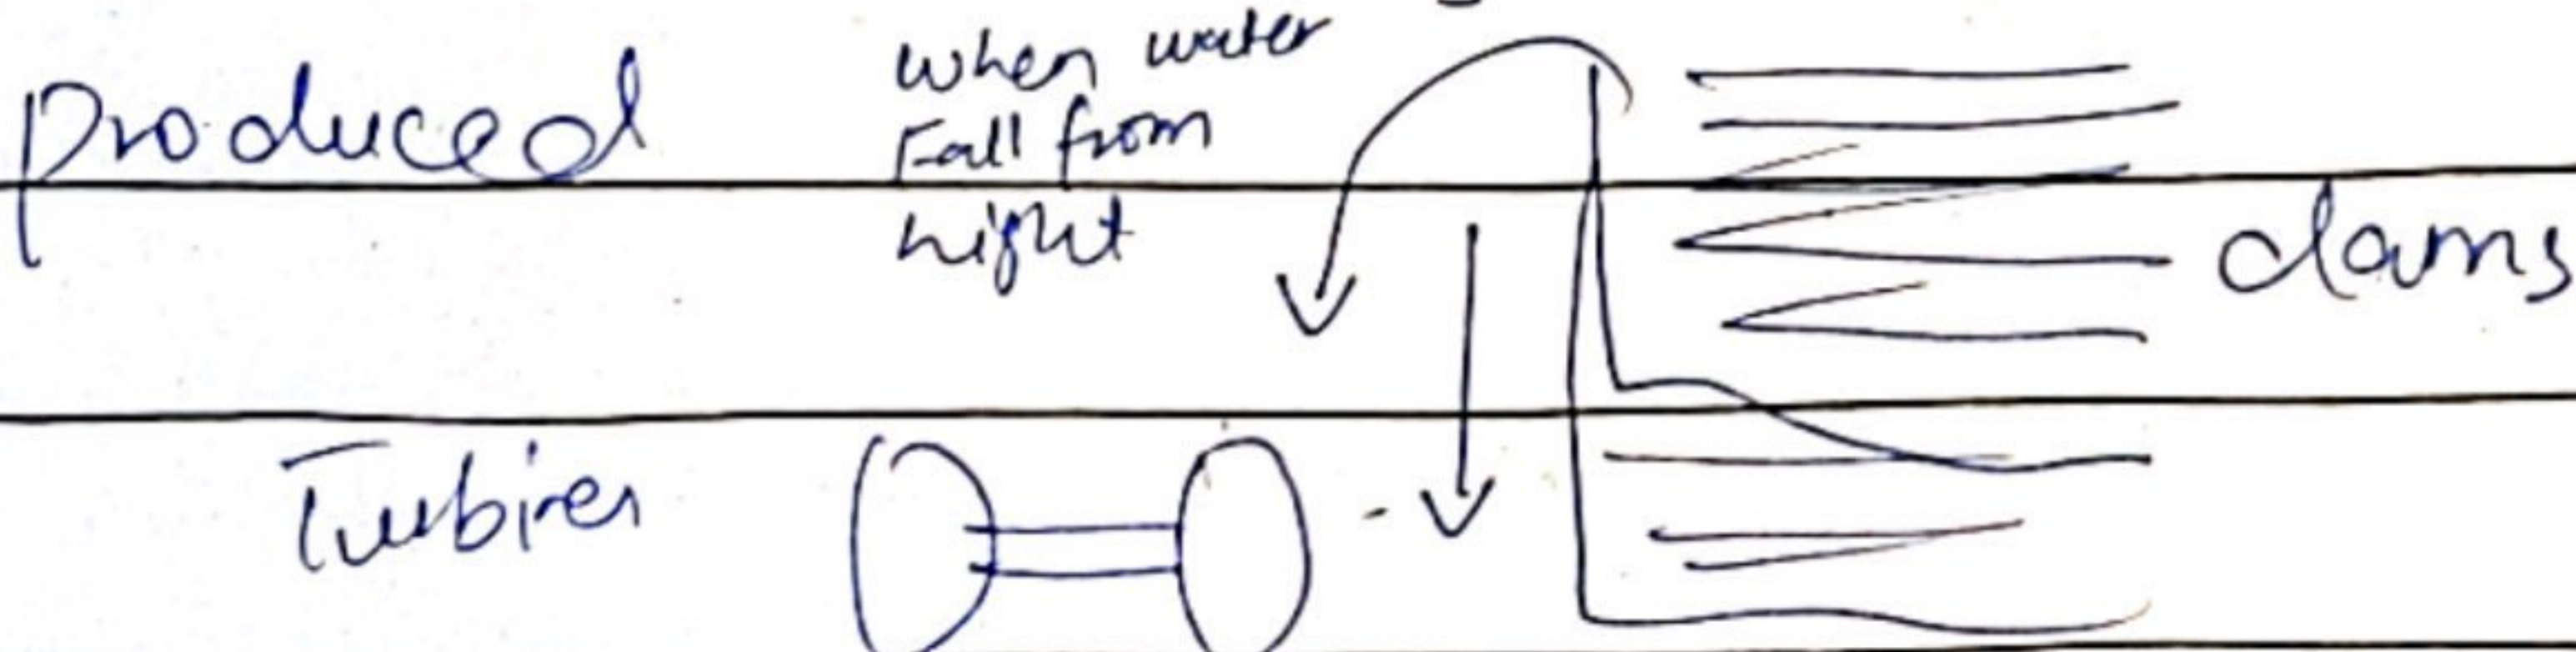 Produced
when water
Fall from
hight
dams
Turbines